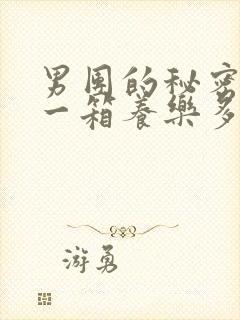 男团的秘密
一箱养樂多
游勇